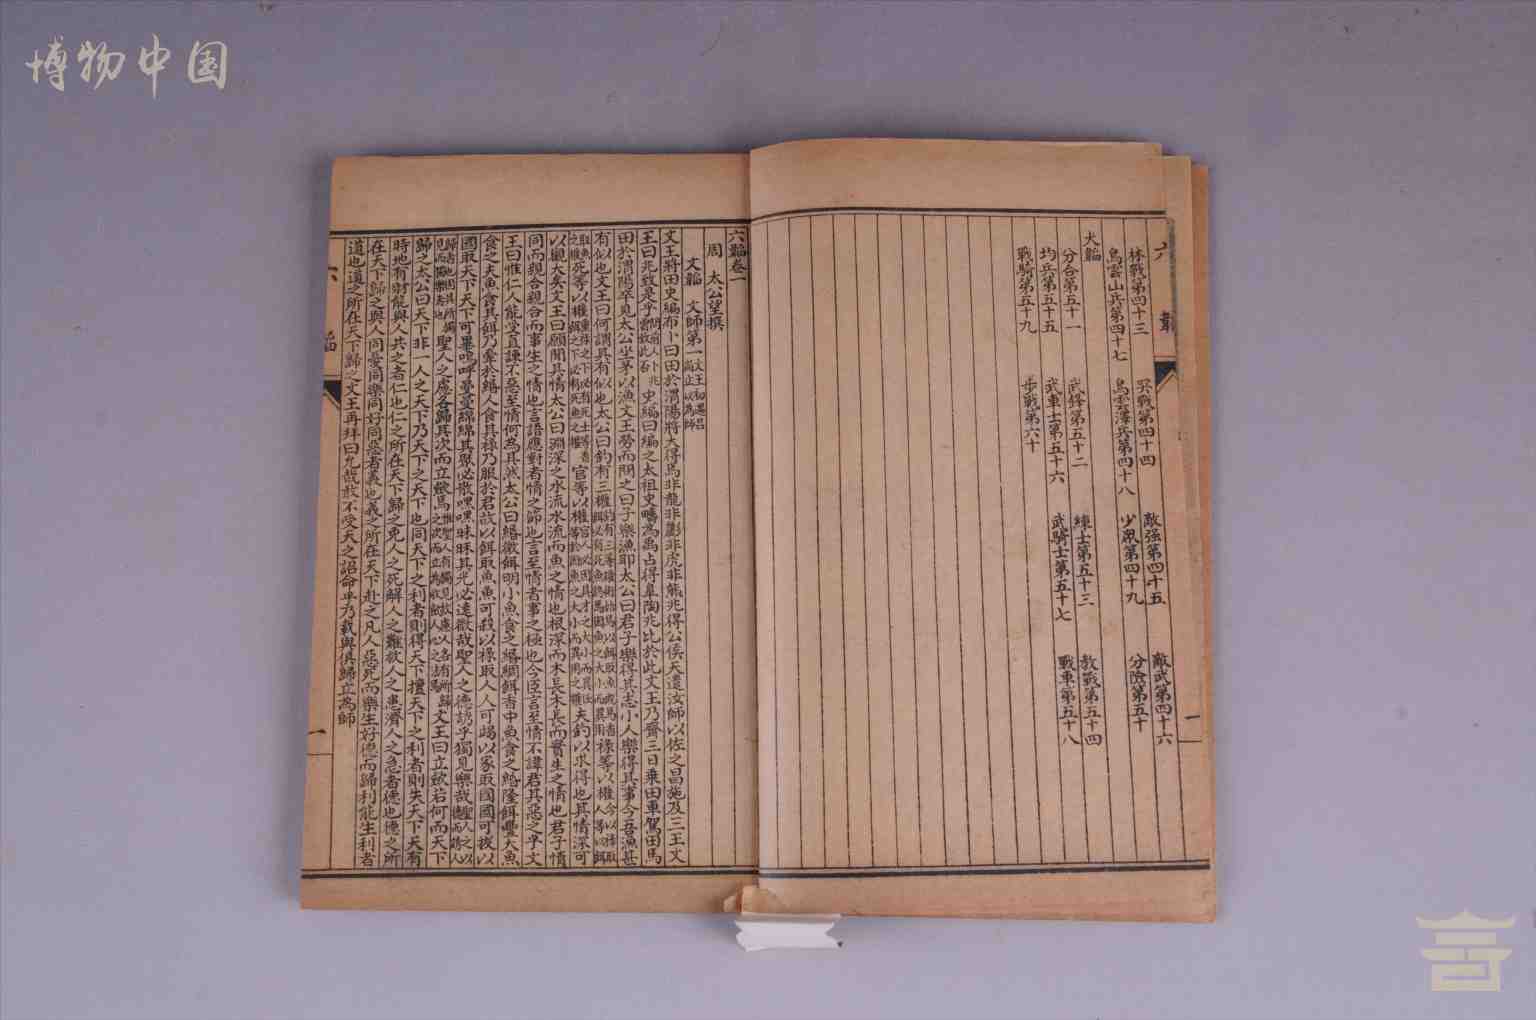 博物中国
林戰第四十三 突戰第四十四 敵强第四十五 敵武第四十六
烏雲山兵第四十七 烏雲澤兵第四十八 少眾第四十九 分險第五十
犬韜
分合第五十一 武鋒第五十二 練士第五十三 教戰第五十四
均兵第五十五 武車士第五十六 武騎士第五十七 戰車第五十八
戰騎第五十九 步戰第六十
六韜卷一
周 太公望撰
文韜 文師第一文王初遇呂尚立以為師
文王將田史編布卜曰田於渭陽將大得焉非龍非彲非虎非熊兆得公侯天遺汝師以佐之昌施及三王文
王曰兆致是乎史編曰編之太祖史疇為禹占得皋陶兆比於此文王乃齋三日乘田車駕田馬
田於渭陽卒見太公坐茅以漁文王勞而問之曰子樂漁耶太公曰君子樂得其志小人樂得其事今吾漁甚
有似也文王曰何謂其有似也太公曰釣有三權祿等以權
死等以權官等以權夫釣以求得也其情深可
以觀大矣文王曰願聞其情太公曰淵深之水流水流而魚之情也根深而木長木長而實生之情也君子情
同而親合親合而事生之情也言語應對者情之飾也言至情者事之極也今臣言至情不諱君其惡之乎文
王曰惟仁人能受直諫不惡至情何為其然太公曰緡微餌明小魚食之緡綢餌香中魚食之緡隆餌豐大魚
食之夫魚食其餌乃牽於緡人食其祿乃服於君故以餌取魚魚可殺以祿取人人可竭以家取國國可拔以
國取天下天下可畢嗚呼曼曼綿綿其聚必散嘿嘿昧昧其光必遠微哉聖人之德誘乎獨見樂哉聖人之
聖人之慮各歸其次而立斂焉文王曰立斂若何而天下
歸之太公曰天下非一人之天下乃天下之天下也同天下之利者則得天下擅天下之利者則失天下天有
時地有財能與人共之者仁也仁之所在天下歸之免人之死解人之難救人之患濟人之急者德也德之所
在天下歸之與人同憂同樂同好同惡者義也義之所在天下赴之凡人惡死而樂生好德而歸利能生利者
道也道之所在天下歸之文王再拜曰允哉敢不受天之詔命乎乃載與俱歸立為師
一